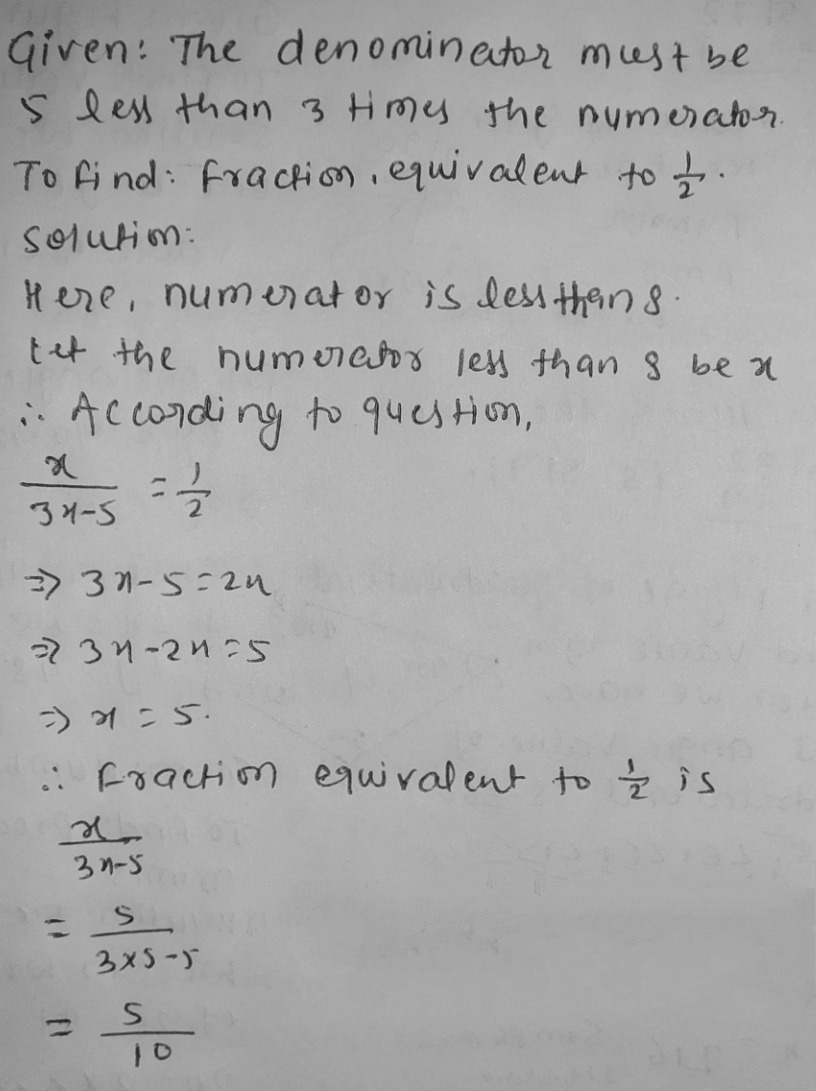 Given: The denominator must be
5 less than 3 times the numerator.
To find: Fraction, equivalent to 1/2.
Solution:
Here, numerator is less than 8.
Let the numerator less than 8 be x
∴ According to question,
x/(3x-5) = 1/2
⇒ 3x-5=2x
⇒ 3x-2x=5
⇒ x=5.
∴ Fraction equivalent to 1/2 is
x/(3x-5)
= 5/(3×5-5)
= 5/10